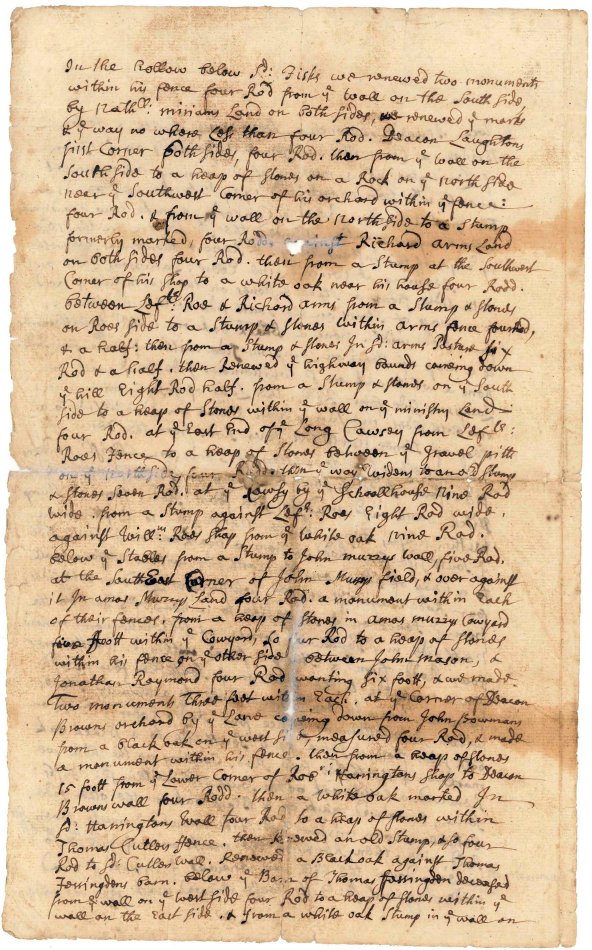 In the hollow below Sd: Fisks we renewed two monuments
within his fence four Rod from ye wall on the South side
by Nathll: miriams Land on both sides, we renewed ye marks
& ye way no where Less than four Rod. Deacon Laughtons
first Corner both sides, four Rod. then from ye wall on the
South side to a heap of stones on a Rock on ye North side
near ye Southwest Corner of his orchard within ye fence:
four Rod. & from ye wall on the North side to a Stump
formerly marked, four Rodd. against Richard arms Land
on both sides four Rod. then from a Stump at the Southwest
Corner of his shop to a white oak near his house four Rodd.
between Leftt: Roe & Richard arms from a Stump & stones
on Roes side to a Stump & stones within arms fence four Rod,
& a half: then from a Stump & stones In Sd: arms Pasture six
Rod & a half. then Renewed ye highway bounds comeing down
ye hill Eight Rod half. from a Stump & stones on ye South
side to a heap of Stones within ye wall on ye ministry Land
four Rod. at ye East End of ye Long Cawsey from Leftt:
Roes fence to a heap of Stones between ye Gravel pitts
on ye North side four Rodd. then ye way widens to an old Stump
& stones Seven Rod. at ye Cawsy by ye Schoollhouse nine Rod
wide. from a Stump against Leftt: Roes Eight Rod wide
against Willm: Roes shop from ye white oak nine Rod.
below ye Stables from a Stump to John murrys wall five Rod.
at the South East Corner of John Murrys field, & over against
it In amos Murrys Land four Rod. a monument within Each
of their fences. from a heap of stones in amos murrys Cowyard
five foott within ye Cowyard, four Rod to a heap of stones
within his fence on ye other side between John Mason, &
Jonathan Raymond four Rod wanting six foott, & we made
Two monuments Three feet within Each. at ye Corner of Deacon
Browns orchard by ye Lane comeing down from John Bowmans
from a black oak on ye west side, measured four Rod, & made
a monument within his fence. then from a heap of stones
15 foott from ye Lower Corner of Harringtons shop to Deacon
Browns wall four Rodd. then a white oak marked In
Sd: Harringtons wall four Rod to a heap of stones within
Thomas Cutlers ffence. then Renewed an old Stump, also four
Rod to Sd: Cutlers wall. Renewed a Black oak against Thomas
Ferringdens barn. below ye Barn of Thomas Farringden deceased
from ye wall on ye west side four Rod to a heap of stones within ye
wall on the East side. & from a white oak Stump in ye wall on